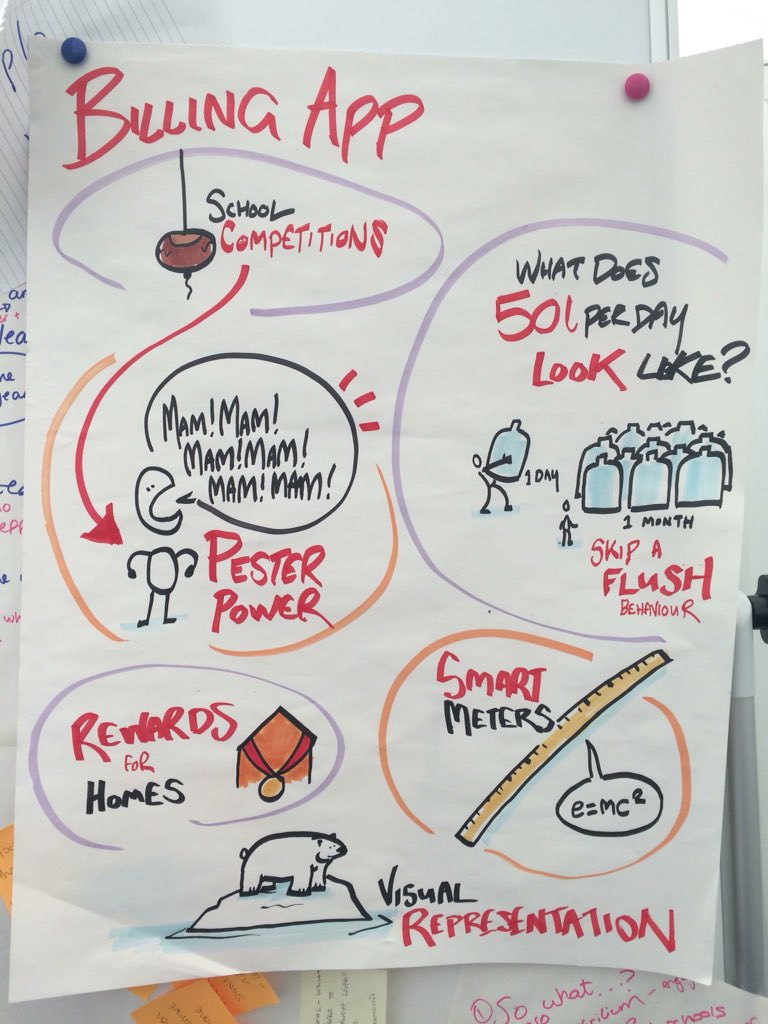 BILLING APP
SCHOOL
COMPETITIONS
WHAT DOES
50l PER DAY
LOOK LIKE?
MAM! MAM!
MAM! MAM!
MAM! MAM!
1 DAY
1 MONTH
PESTER
POWER
SKIP A
FLUSH
BEHAVIOUR
SMART
METERS
e=mc²
REWARDS
FOR
HOMES
VISUAL
REPRESENTATION
① So what...?
schools